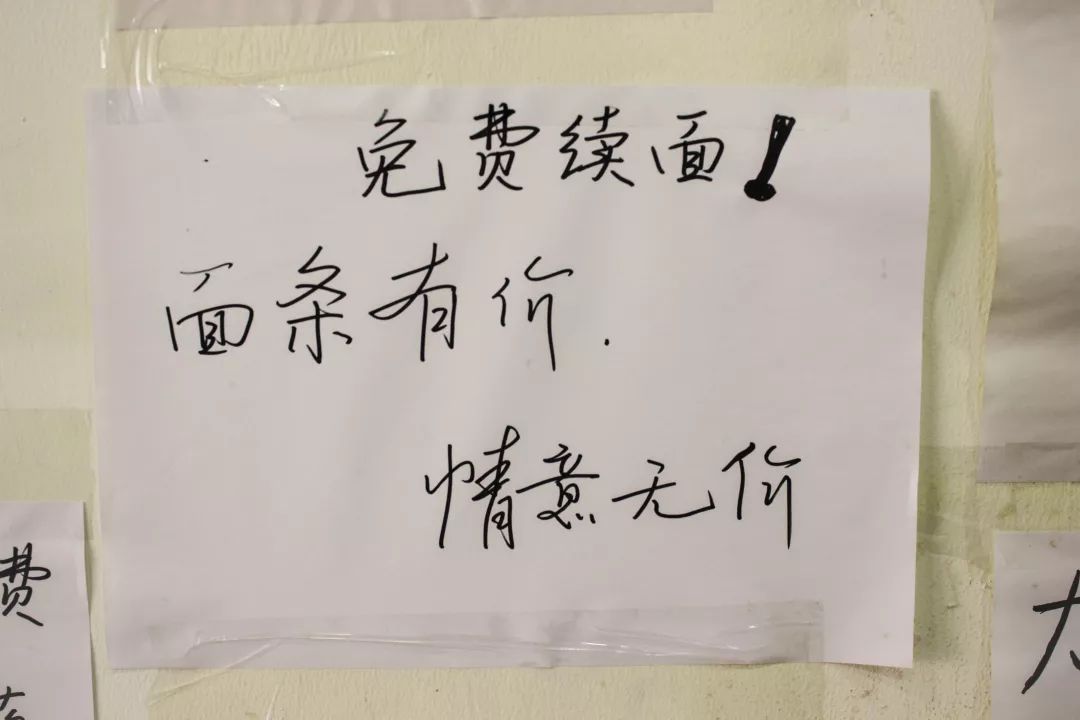 免费续面!
面条有价.
情意无价
费